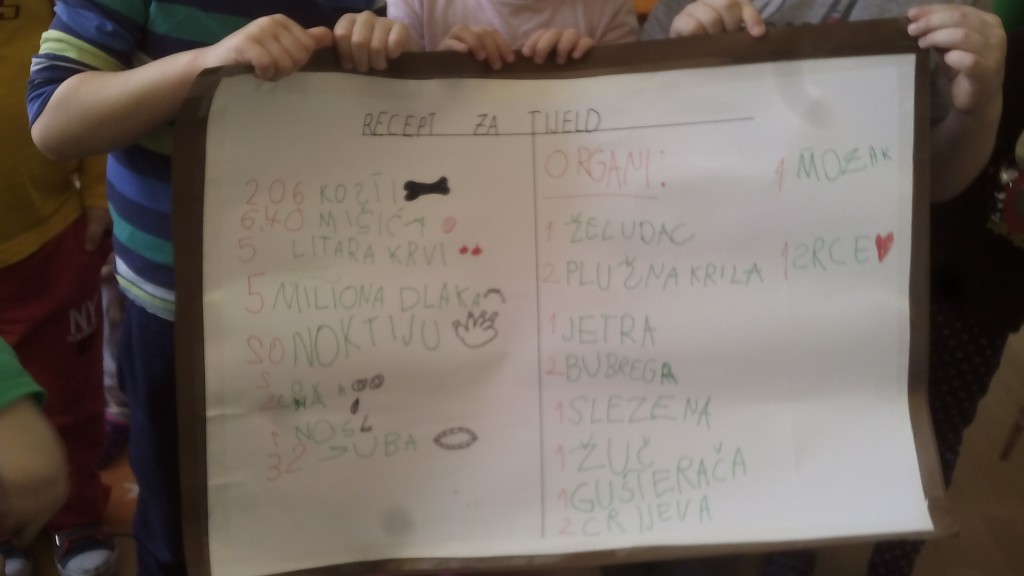 RECEPT ZA TIJELO
206 KOSTI
640 MIŠIĆA
5 LITARA KRVI
5 MILIONA DLAKA
20 NOKTIJU
2
1 NOS
32 ZUBA
ORGANI:
1 ŽELUDAC
2 PLUČNA KRILA
1 JETRA
2 BUBREGA
1 SLEZENA
1 ŽUČ
1 GUŠTERAČA
2 CRIJEVA
1 MOZAK
1 SRCE
NY